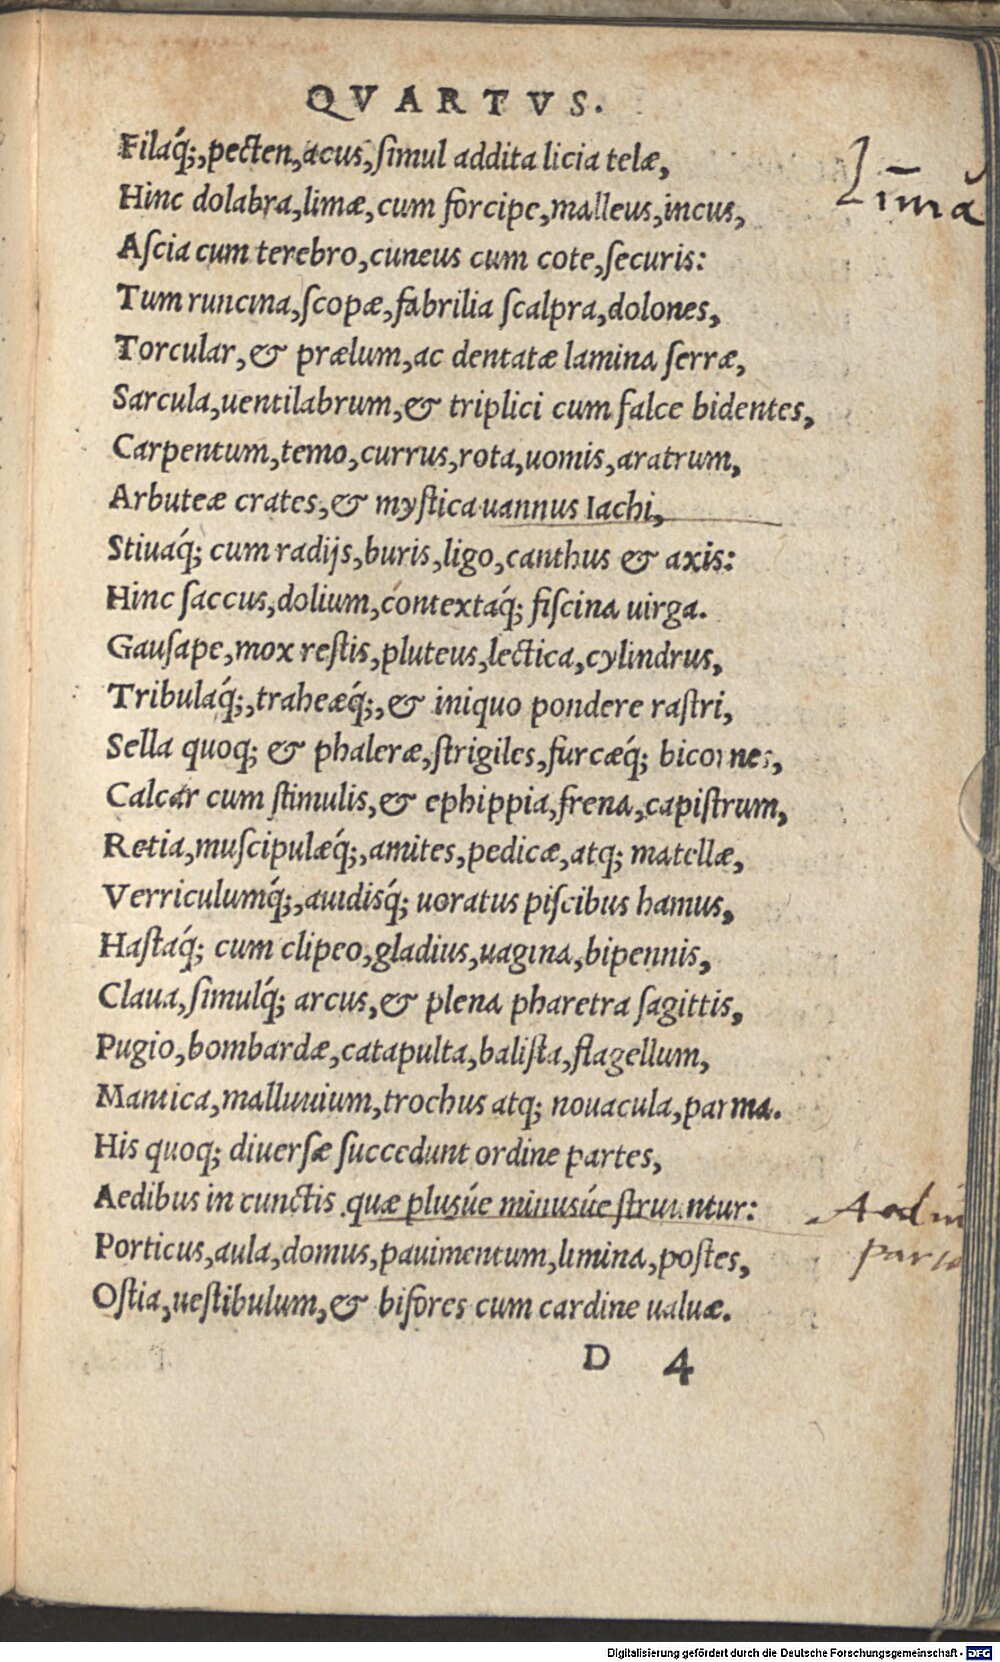 QVARTVS.
Filaq́;,pecten,acus,ſimul addita licia telæ,
Hinc dolabra,limæ,cum forcipe,malleus,incus,
Aſcia cum terebro,cuneus cum cote,ſecuris:
Tum runcina,ſcopæ,fabrilia ſcalpra,dolones,
Torcular,& prælum,ac dentatæ lamina ſerræ,
Sarcula,uentilabrum,& triplici cum falce bidentes,
Carpentum,temo,currus,rota,uomis,aratrum,
Arbuteæ crates,& myſtica uannus Iachi,
Stiuaq́; cum radijs,buris,ligo,canthus & axis:
Hinc ſaccus,dolium,contextaq́; fiſcina uirga.
Gauſape,mox reſtis,pluteus,lectica,cylindrus,
Tribulaq́;,traheæq́;,& iniquo pondere raſtri,
Sella quoq; & phaleræ,ſtrigiles,furcæq́; bicornes,
Calcar cum ſtimulis,& ephippia,frena,capiſtrum,
Retia,muſcipulæq́;,amites,pedicæ,atq; matellæ,
Verriculumq́;,auidisq́; uoratus piſcibus hamus,
Haſtaq́; cum clipeo,gladius,uagina,bipennis,
Claua,ſimulq́; arcus,& plena pharetra ſagittis,
Pugio,bombardæ,catapulta,baliſta,flagellum,
Mantica,malluuium,trochus atq; nouacula,parma.
His quoq; diuerſæ ſuccedunt ordine partes,
Aedibus in cunctis quæ plusúe minusúe ſtruuntur:
Porticus,aula,domus,pauimentum,limina,poſtes,
Oſtia,ueſtibulum,& bifores cum cardine ualuæ.
D 4
Digitalisierung gefördert durch die Deutsche Forschungsgemeinschaft - DFG